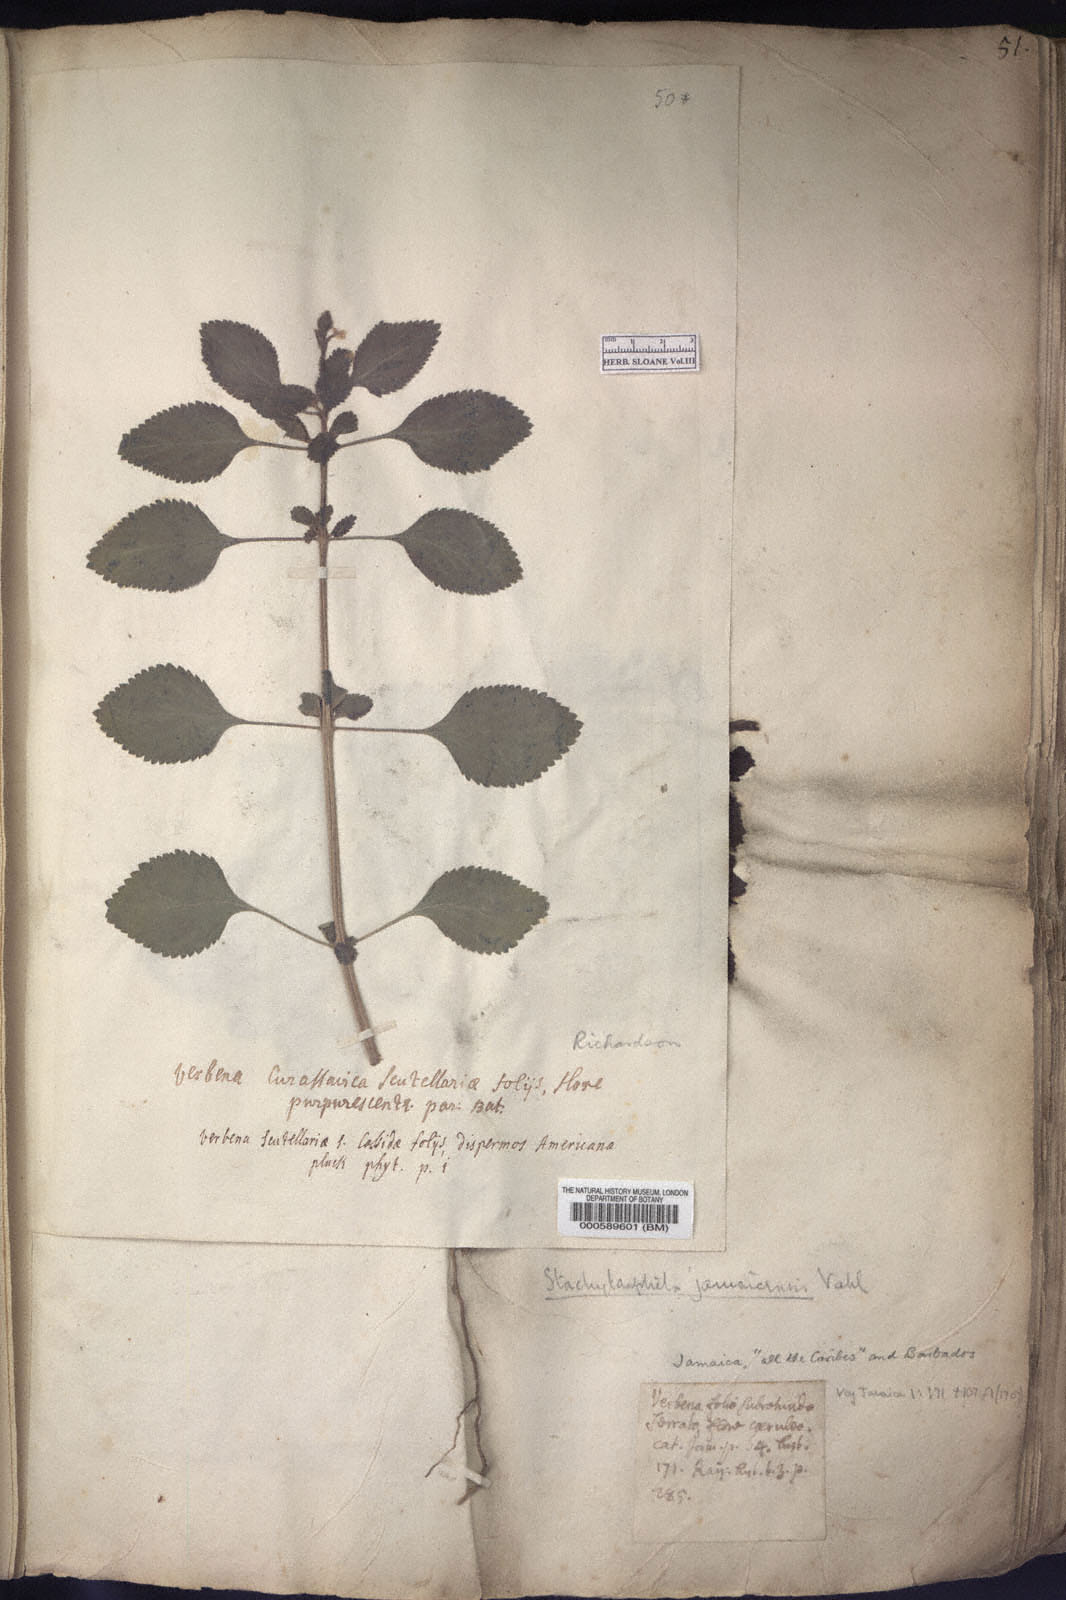 51.
50*
mm 1 2 3
HERB. SLOANE Vol.III
Richardson
Verbena Curassavica Scutellariæ folijs, flore
purpurescente. par: Bat:
Verbena Scutellariæ s. Cassidæ folijs, dispermos Americana
pluck phyt. p. 1
THE NATURAL HISTORY MUSEUM, LONDON
DEPARTMENT OF BOTANY
000589601 (BM)
Stachytarpheta jamaicensis Vahl
Jamaica, "all the Caribes" and Barbados
Voy Jamaica 1: 171 t107 f1
Verbena folio subrotundo
serrato, flore cæruleo.
cat. jam. p. 64. hist.
171. Raij. hist. t. 3. p.
285.